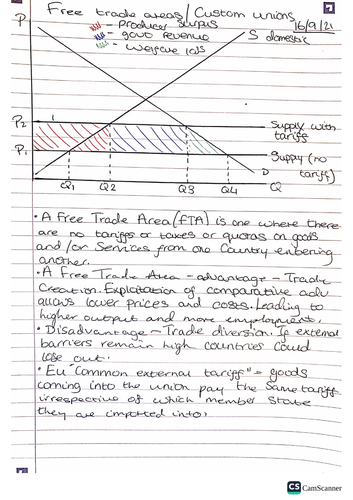 Free trade areas/Custom unions
16/9/21
P
- Producer surplus
- govt revenue
- welfare loss
S domestic
P2
Supply with
tariff
P1
Supply (no
tariff)
D
Q1 Q2 Q3 Q4 Q
• A Free Trade Area (FTA) is one where there
are no tariffs or taxes or quotas on goods
and/or Services from one Country entering
another.
• A Free Trade Area - advantage - Trade
Creation. Exploitation of comparative adv
allows lower prices and costs. Leading to
higher output and more employment.
• Disadvantage - Trade diversion. If external
barriers remain high countries could
lose out.
• EU "Common external tariff" = goods
coming into the union pay the same tariff
irrespective of which member state
they are imported into.
CS CamScanner